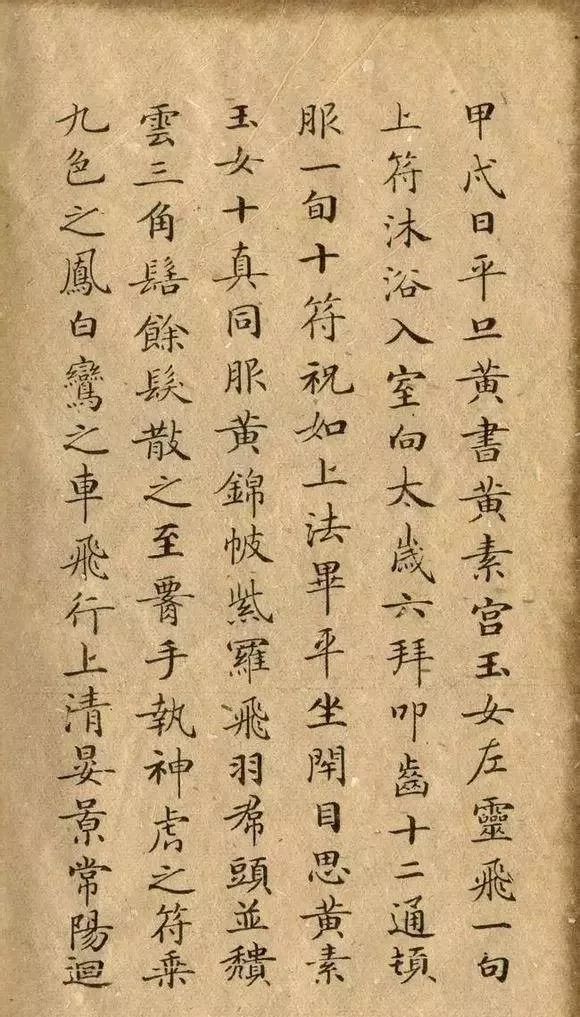 甲戌日平旦黄書黄素宫玉女左靈飛一旬
上符沐浴入室向太歲六拜叩齒十二通頓
服一旬十符祝如上法畢平坐閇目思黄素
玉女十真同服黄錦帔紫羅飛羽帬頭並穨
雲三角髻餘髮散之至𦝫手執神虎之符乗
九色之鳳白鸞之車飛行上清晏景常陽迴